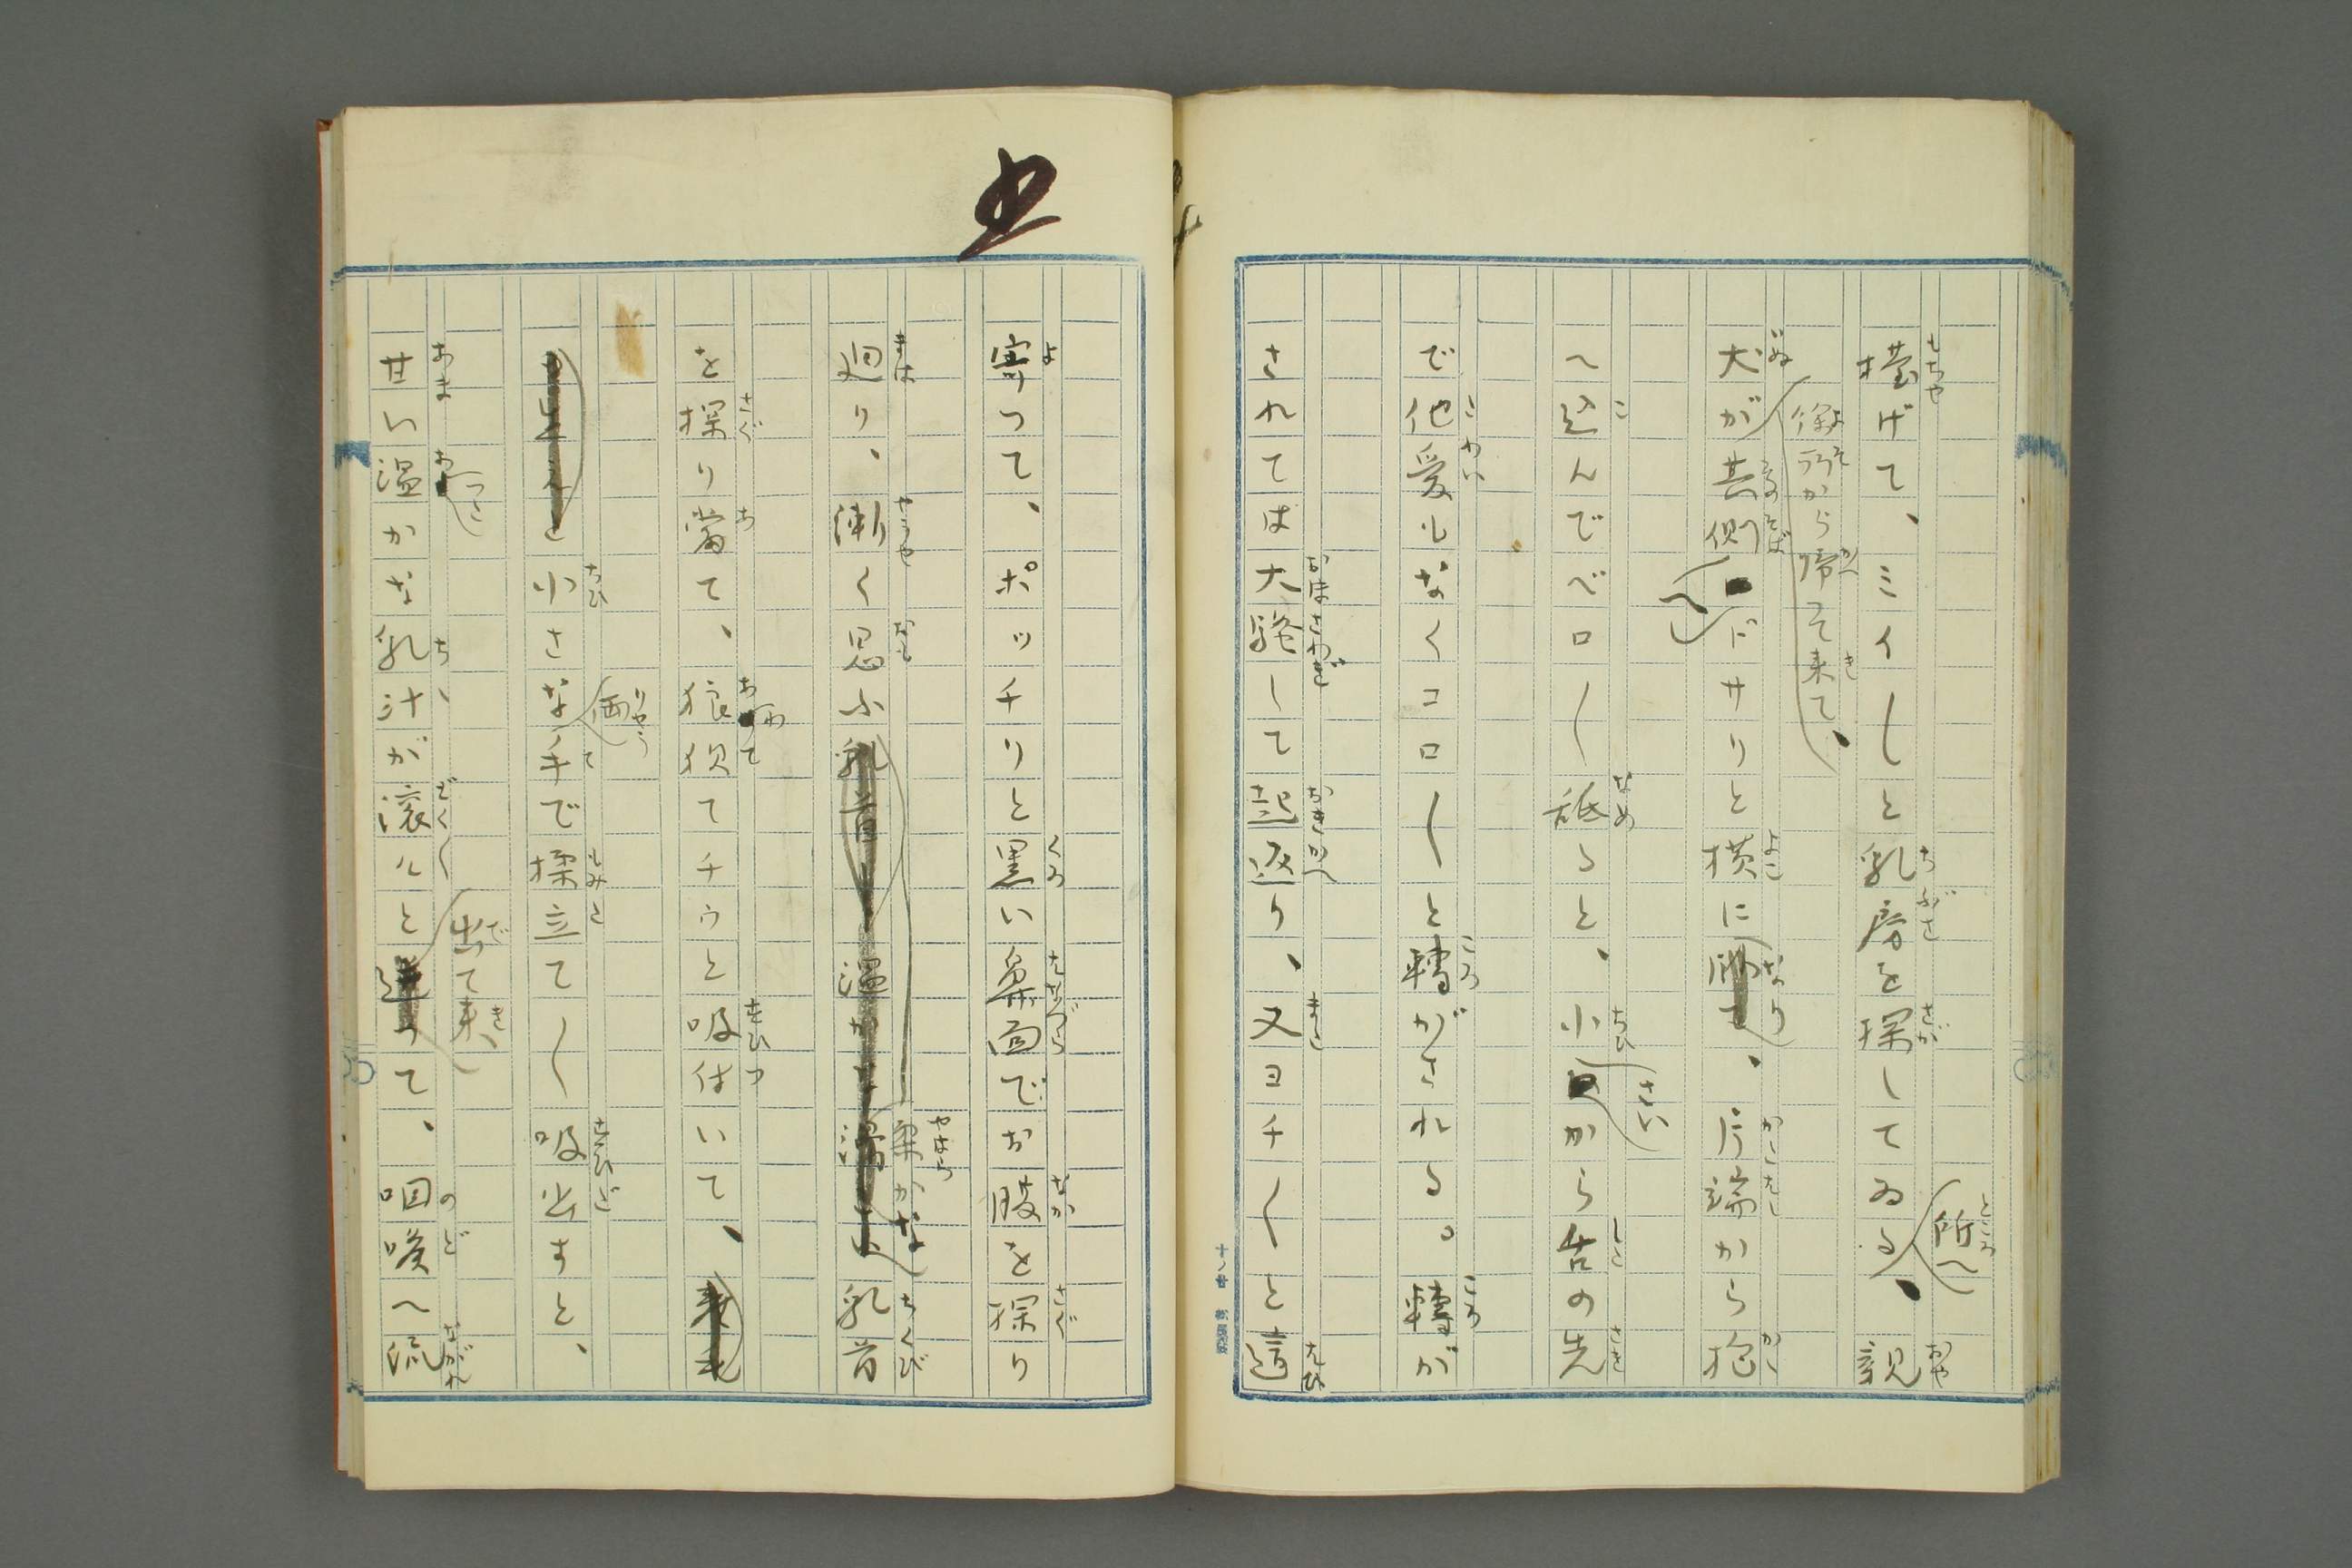 擡げて、ミイ〳〵と乳房を探してゐる所へ、親
犬が余所から帰つて来て、其側へドサリと横になり、片端から抱
へ込んでベロ〳〵舐ると、小さいから舌の先
で他愛もなくコロ〳〵と轉がされる。轉が
されては大騒して起返り、又ヨチ〳〵と這
寄つて、ポッチリと黒い鼻面でお腹を探り
廻り、漸く思ふ柔かな乳首
を探り當て、狼狽てチウと吸付いて、
小さな両手で揉立て〳〵吸出すと、
甘い温かな乳汁が滾々と出て来て、咽喉へ流